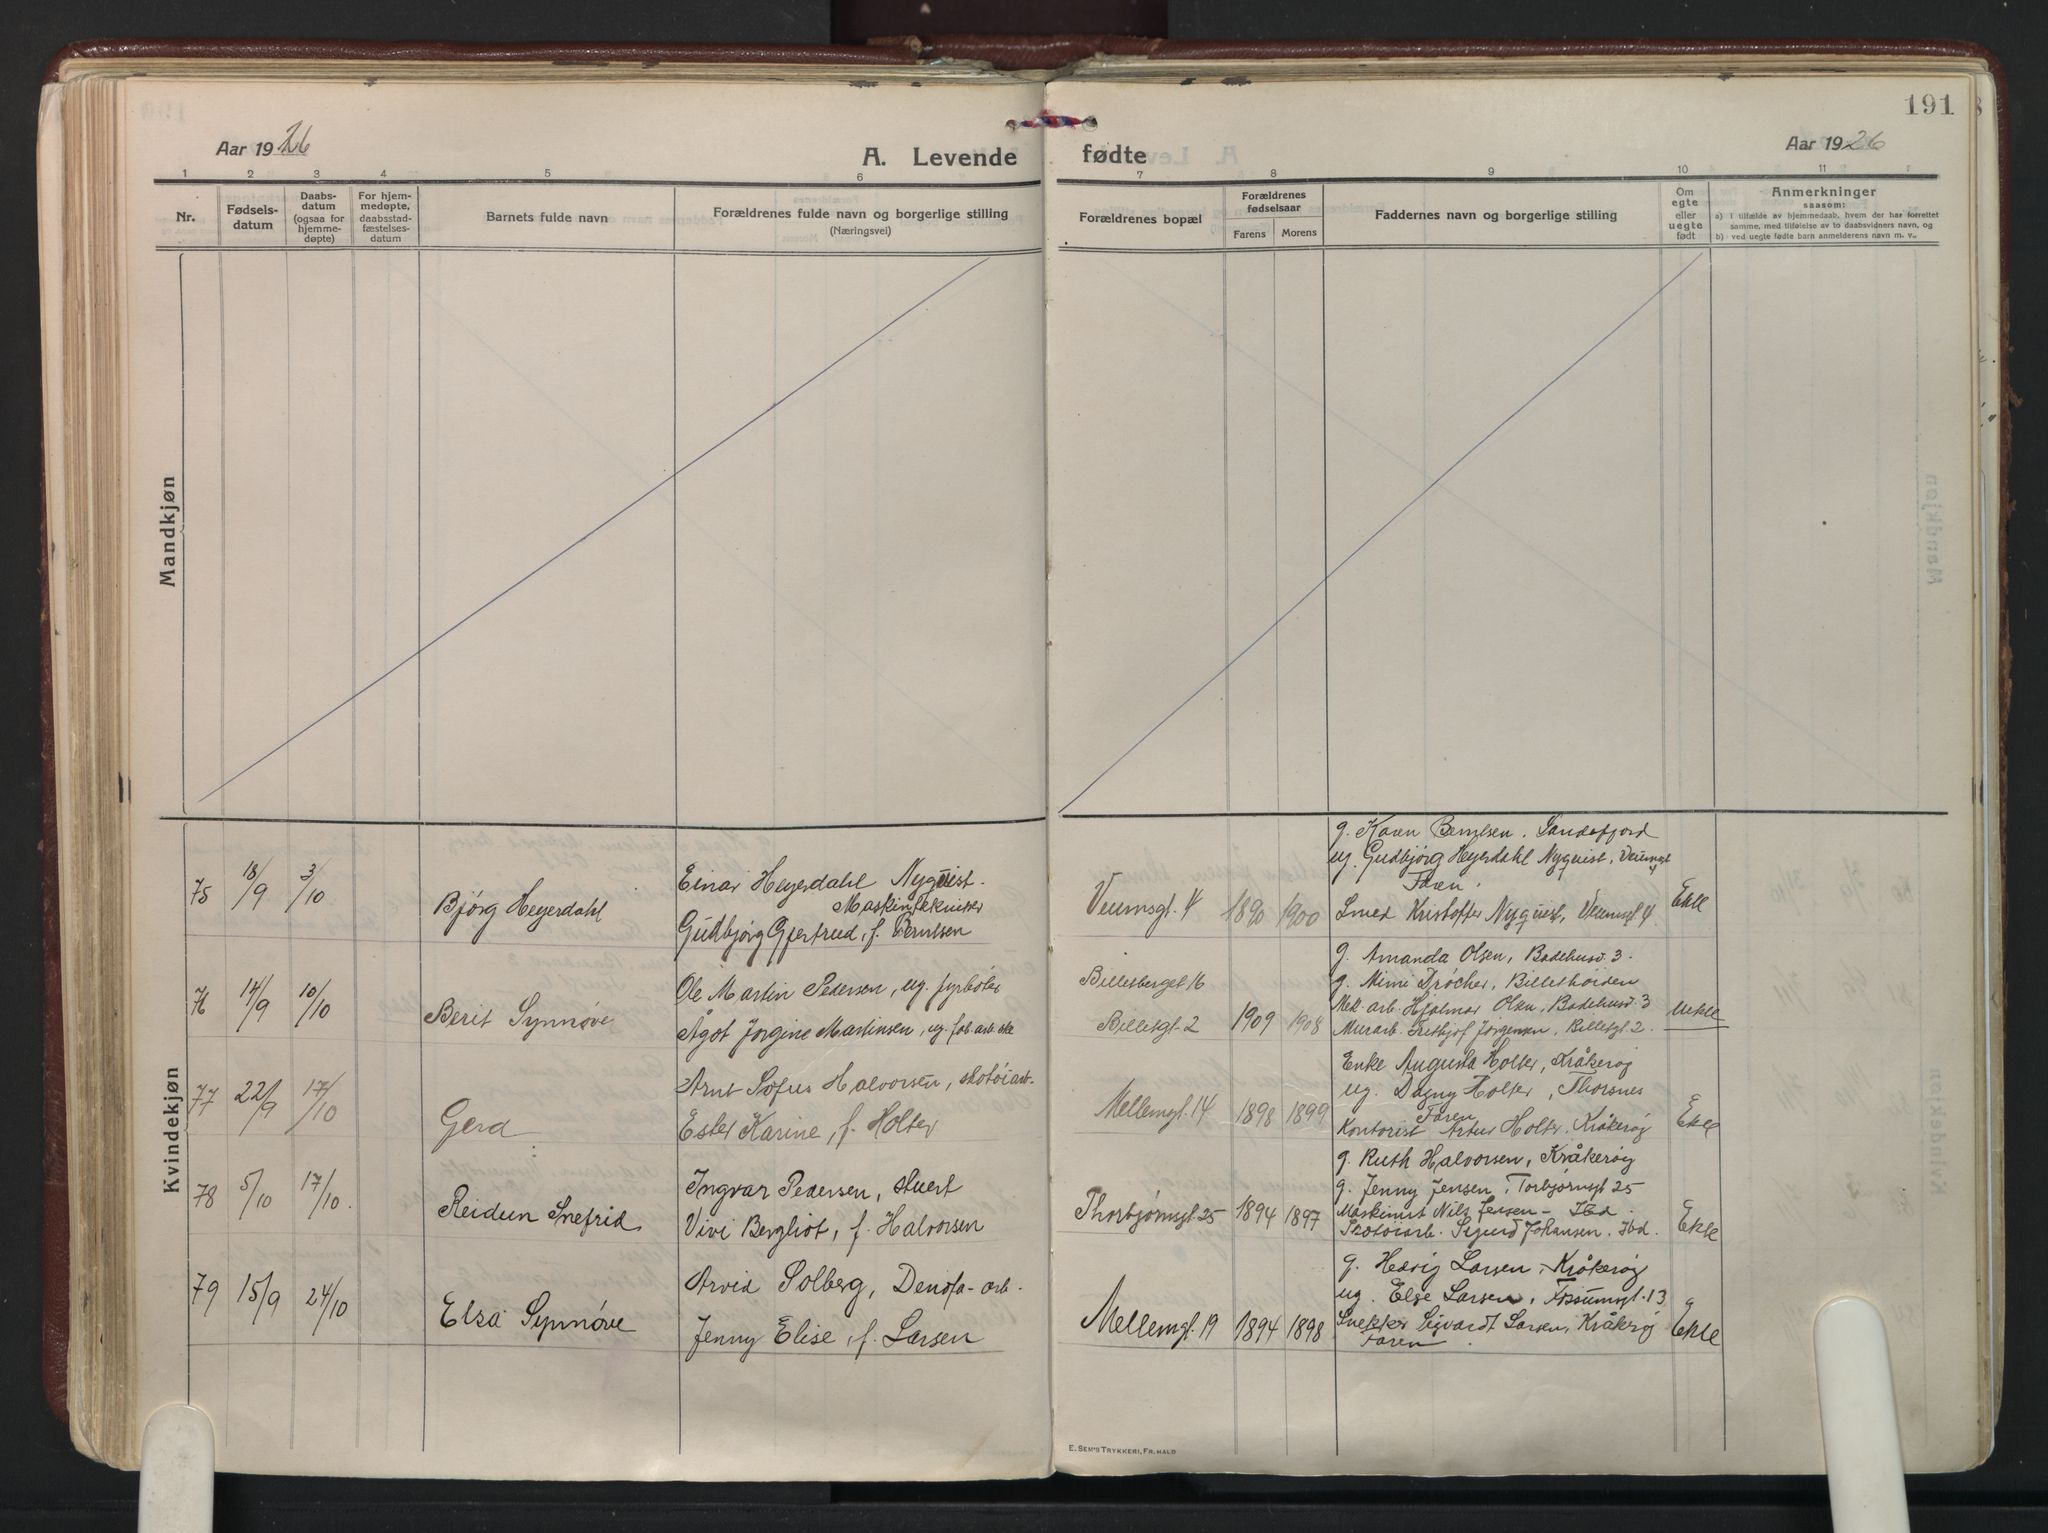 191
Aar 1926
A. Levende fødte
Aar 1926
1 2 3 4 5 6 7 8 9 10 11
Nr.
Fødsels-
datum
Daabs-
datum
(ogsaa for
hjemme-
døpte)
For hjem-
medøpte,
daabsstad-
fæstelses-
datum
Barnets fulde navn
Forældrenes fulde navn og borgerlige stilling
(Næringsvei)
Forældrenes bopæl
Forældrenes
fødselsaar
Farens Morens
Faddernes navn og borgerlige stilling
Om
egte
eller
uegte
født
Anmerkninger
saasom:
a) I tilfælde av hjemmedaab, hvem der har forrettet
samme, med tilføielse av to daabsvidners navn, og
b) ved uegte fødte barn anmelderens navn m. v..
Mandkjøn
Kvindekjøn
75 18/9 3/10 Bjørg Heyerdahl
Einar Heyerdahl Nyquist.
Maskintekniker
Gudbjørg Gjertrud, f. Berntsen
Veumsgt. 4 1890 1900
g. Karen Berntsen. Sandefjord
ug. Gudbjørg Heyerdahl Nyquist, Veumsgt 4
Faren.
Smed Kristoffer Nyquist, Veumsgt 4
Ekte
76 14/9 10/10 Berit Synnøve
Ole Martin Pedersen, ug. fyrbøter
Ågot Jørgine Martinsen, ug. fab. arb. ske
Billesberget 16
Billesgt. 2 1909 1908
g. Amanda Olsen, Badehusv 3.
g. Mimi Drocher, Billeshøiden
Mek. arb. Hjalmar Olsen, Badehusv. 3
Murarb. Fritjof Jørgensen, Billesgt 2.
Uekte
77 22/9 17/10 Gerd
Arnt Sofus Halvorsen, skotøiarb.
Ester Karine, f. Holter
Mellemgt. 14 1898 1899
Enke Augusta Holter, Kråkerøy
ug. Dagny Holter, Thorsnes
Faren
Kontorist Artur Holter. Kråkerøy
Ekte
78 5/10 17/10. Reidun Snefrid
Ingvar Pedersen, stuert
Vivi Bergliot, f. Halvorsen
Thorbjørnsgt. 25 1894 1897
g. Ruth Halvorsen, Kråkerøy
g. Jenny Jensen, Torbjørnsgt 25
Maskinist Nils Jensen - Ibd.
Skotøiarb. Sigurd Johansen. Ibd.
Ekte
79 15/9 24/10 Elsa Synnøve
Arvid Solberg, Denofa-arb.
Jenny Elise, f. Larsen
Mellemgt. 19 1894 1898
g. Hedvig Larsen, Kråkerøy
ug. Else Larsen, Fossumsgt. 13
Snekker Sigvardt Larsen, Kråkerøy
Faren.
Ekte
E. SEM'S TRYKKERI, FR.HALD